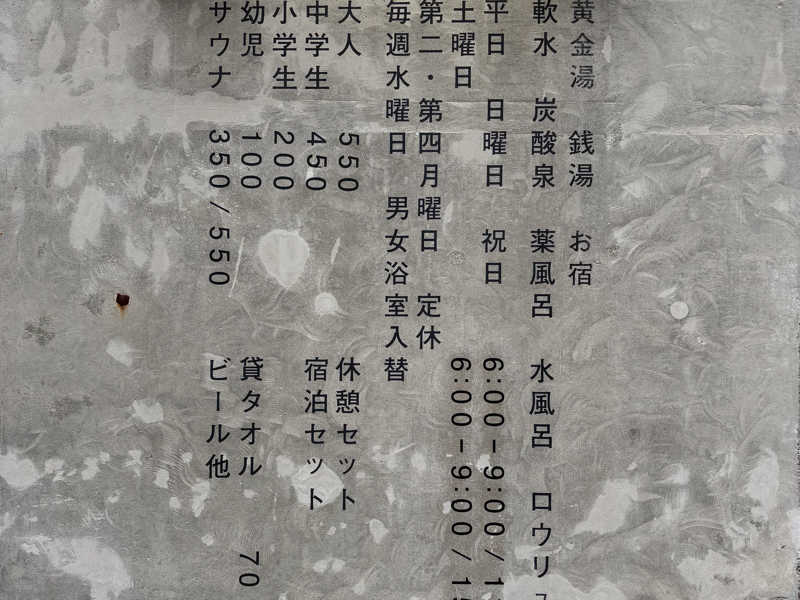 黄金湯 銭湯 お宿
軟水 炭酸泉 薬風呂 水風呂 ロウリ
平日 日曜日 祝日 6:00-9:00/1
土曜日 6:00-9:00/1
第二・第四月曜日 定休
毎週水曜日 男女浴室入替
大人 550 休憩セット
中学生 450 宿泊セット
小学生 200
幼児 100 貸タオル 70
サウナ 350/550 ビール他